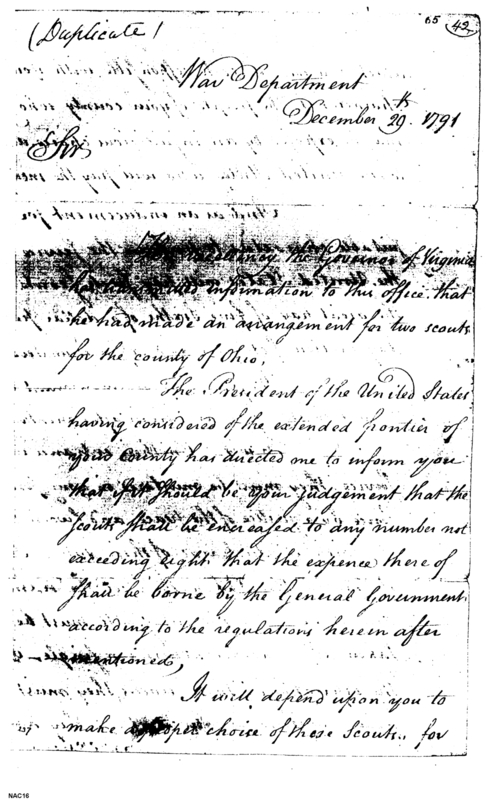 65 42
(Duplicate)
War Department
December 29th. 1791
Sir
His Excellency the Governor of Virginia
has transmitted information to this office that
he had made an arrangement for two scouts
for the county of Ohio.
The President of the United States
having considered of the extended frontier of
your County has directed me to inform you
that if it should be your judgement that the
scouts shall be encreased to any number not
exceeding eight that the expence there of
shall be borne by the General Government
according to the regulations herein after
mentioned,
It will depend upon you to
make a proper choice of these Scouts.. for
NAC16